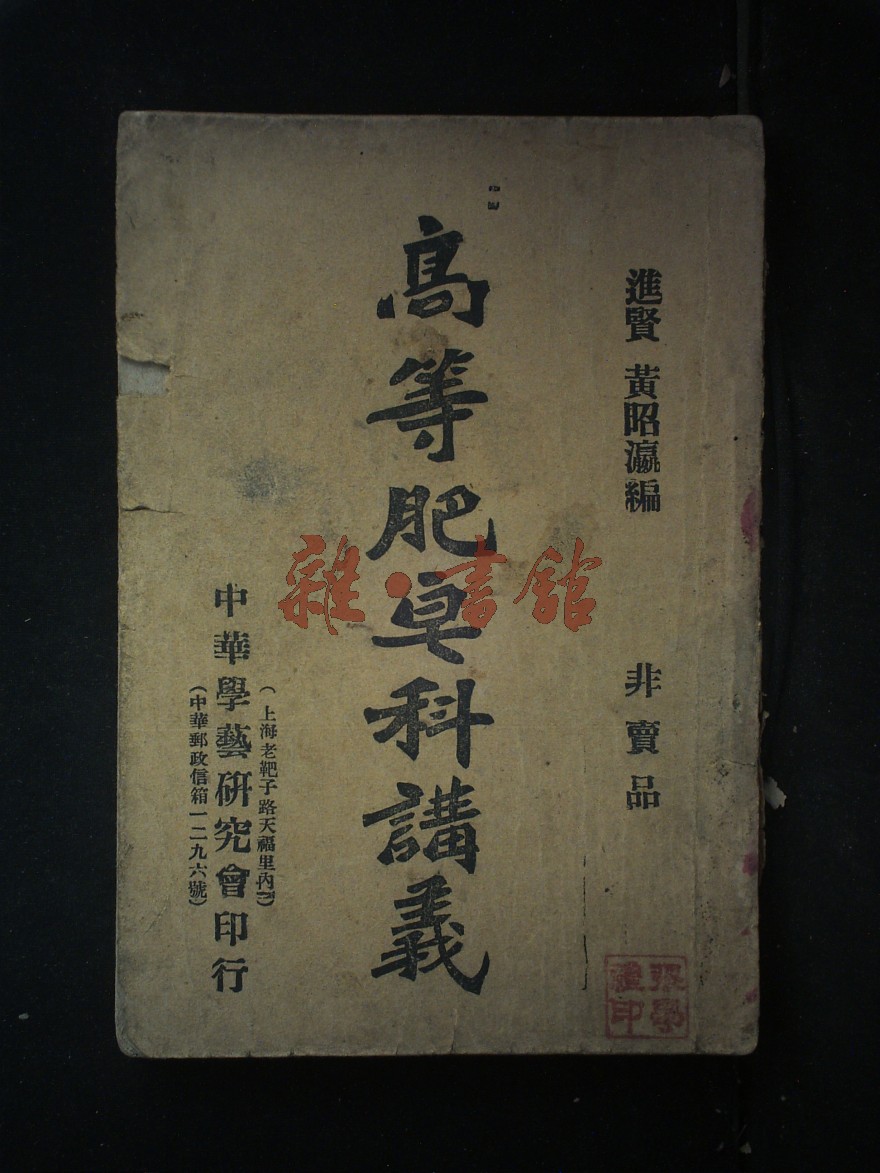 進賢 黃昭瀛編
非賣品
高等肥皂科講義
(上海老靶子路天福里內)
中華學藝研究會印行
(中華郵政信箱一二九六號)
雜·書館
張學
禮印